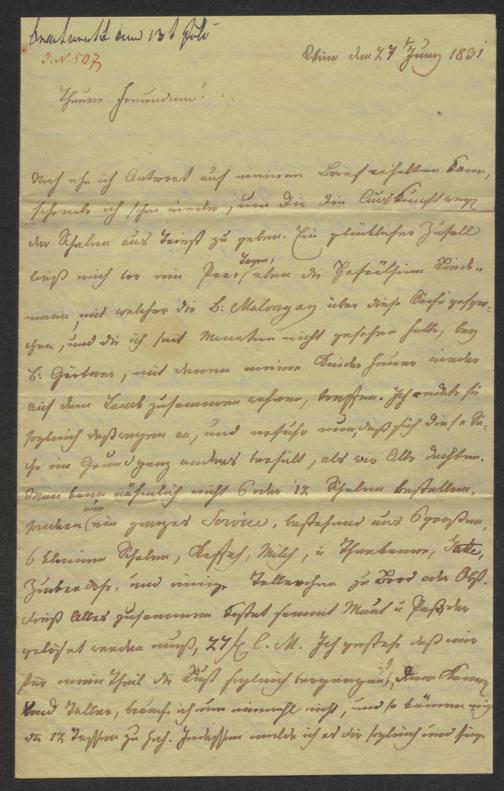 Beantwortet den 13t Juli
J.N. 507
Wien den 27t Juny 1831
Theure Freundinn!
Noch ehe ich Antwort auf meinen Brief erhalten kann,
schreibe ich schon wieder, um Dir die Auskunft wegen
der Schalen aus Triest zu geben. Ein glücklicher Zufall
ließ mich vor ein Paar Tagen, eben die Hofräthinn
mann, mit welcher die B: Maltongay über diese Sache gespro-
chen, und die ich seit Monathen nicht gesehen hatte, bey
B: Gärtner, mit denen meine Kinder heuer wieder
auf dem Lande zusammen wohnen, treffen. Ich redete sie
sogleich deßwegen an, und erfuhr nun, daß sich diese Sa-
che im Grund ganz anders verhält, als wir Alle dachten.
Man kann nähmlich nicht 6 oder 12 Schalen bestellen,
sondern nur ein ganzes Service, bestehend aus 6 großen,
6 kleinen Schalen, Kaffeh, Milch, u Theekanne,
Zuckerdose, und einige Tellerchen zu Brod oder Obst.
Dieß Alles zusammen kostet sammt Maut u Paß, der
gelöset werden muß, 27 f C. M. Ich gestehe daß mir
für mein Theil die Lust sogleich vergangen ist, denn Kannen
und Teller, brauche ich nun einmahl nicht, und so kämen mir
die 12 Tassen zu hoch. Indessen melde ich es dir sogleich und